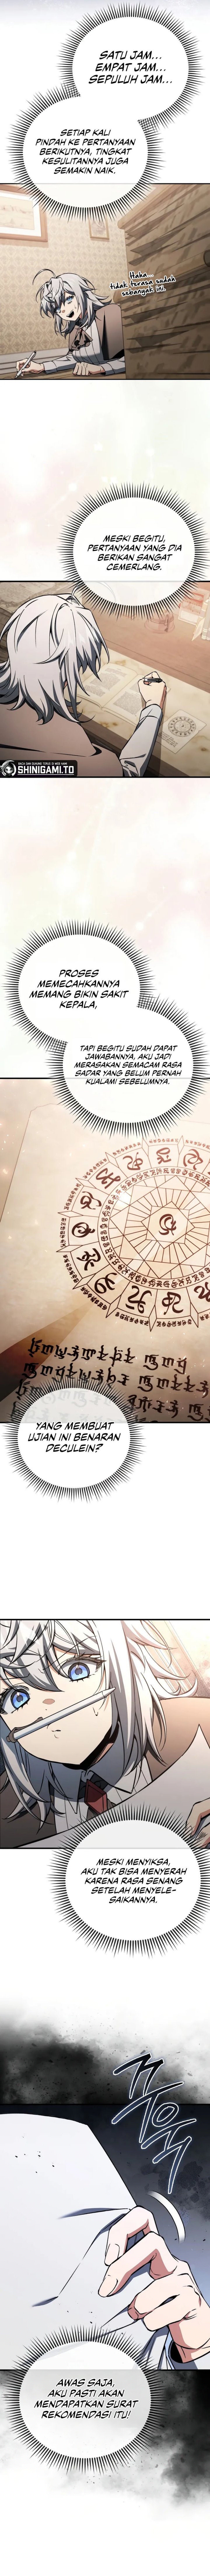 SATU JAM...
EMPAT JAM...
SEPULUH JAM...
SETIAP KALI
PINDAH KE PERTANYAAN
BERIKUTNYA, TINGKAT
KESULITANNYA JUGA
SEMAKIN NAIK.
Haha...
tidak terasa sudah
sebanyak ini.
MESKI BEGITU,
PERTANYAAN YANG DIA
BERIKAN SANGAT
CEMERLANG.
SHINIGAMI.TO
PROSES
MEMECAHKANNYA
MEMANG BIKIN SAKIT
KEPALA,
TAPI BEGITU SUDAH DAPAT
JAWABANNYA, AKU JADI
MERASAKAN SEMACAM RASA
SADAR YANG BELUM PERNAH
KUALAMI SEBELUMNYA.
YANG MEMBUAT
UJIAN INI BENARAN
DECULEIN?
MESKI MENYIKSA,
AKU TAK BISA MENYERAH
KARENA RASA SENANG
SETELAH MENYELE-
SAIKANNYA.
AWAS SAJA,
AKU PASTI AKAN
MENDAPATKAN SURAT
REKOMENDASI ITU!